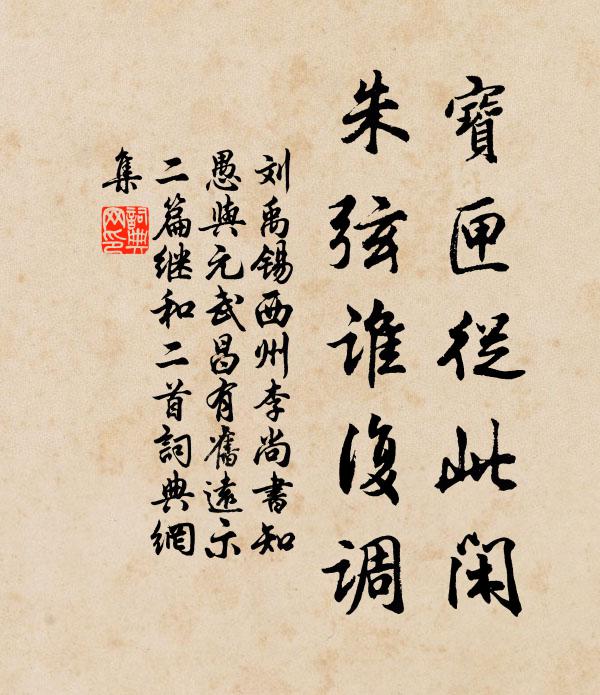 寶匣從此閑
朱弦誰復調
刘禹锡西州李尚書知
愚與元武昌有舊遠示
二篇继和二首詞典網
集
詞典網印